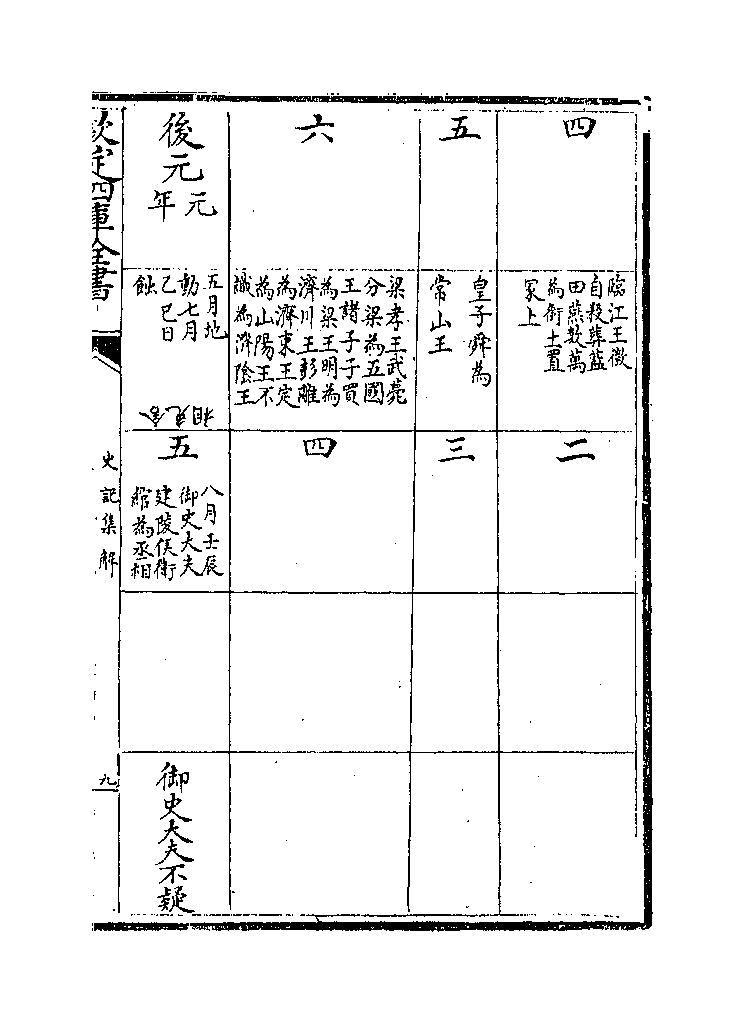 四
臨江王徵
自殺葬藍
田燕數萬
為銜土置
冢上
二
五
皇子舜為
常山王
三
六
梁孝王武薨
分梁為五國
王諸子子買
為梁王明為
濟川王彭離
為濟東王定
為山陽王不
識為濟陰王
四
後元
元年
五月地
動七月
乙巳日
蝕
舍免相
五
八月壬辰
御史大夫
建陵侯衛
綰為丞相
御史大夫不疑
欽定四庫全書
史記集解
九